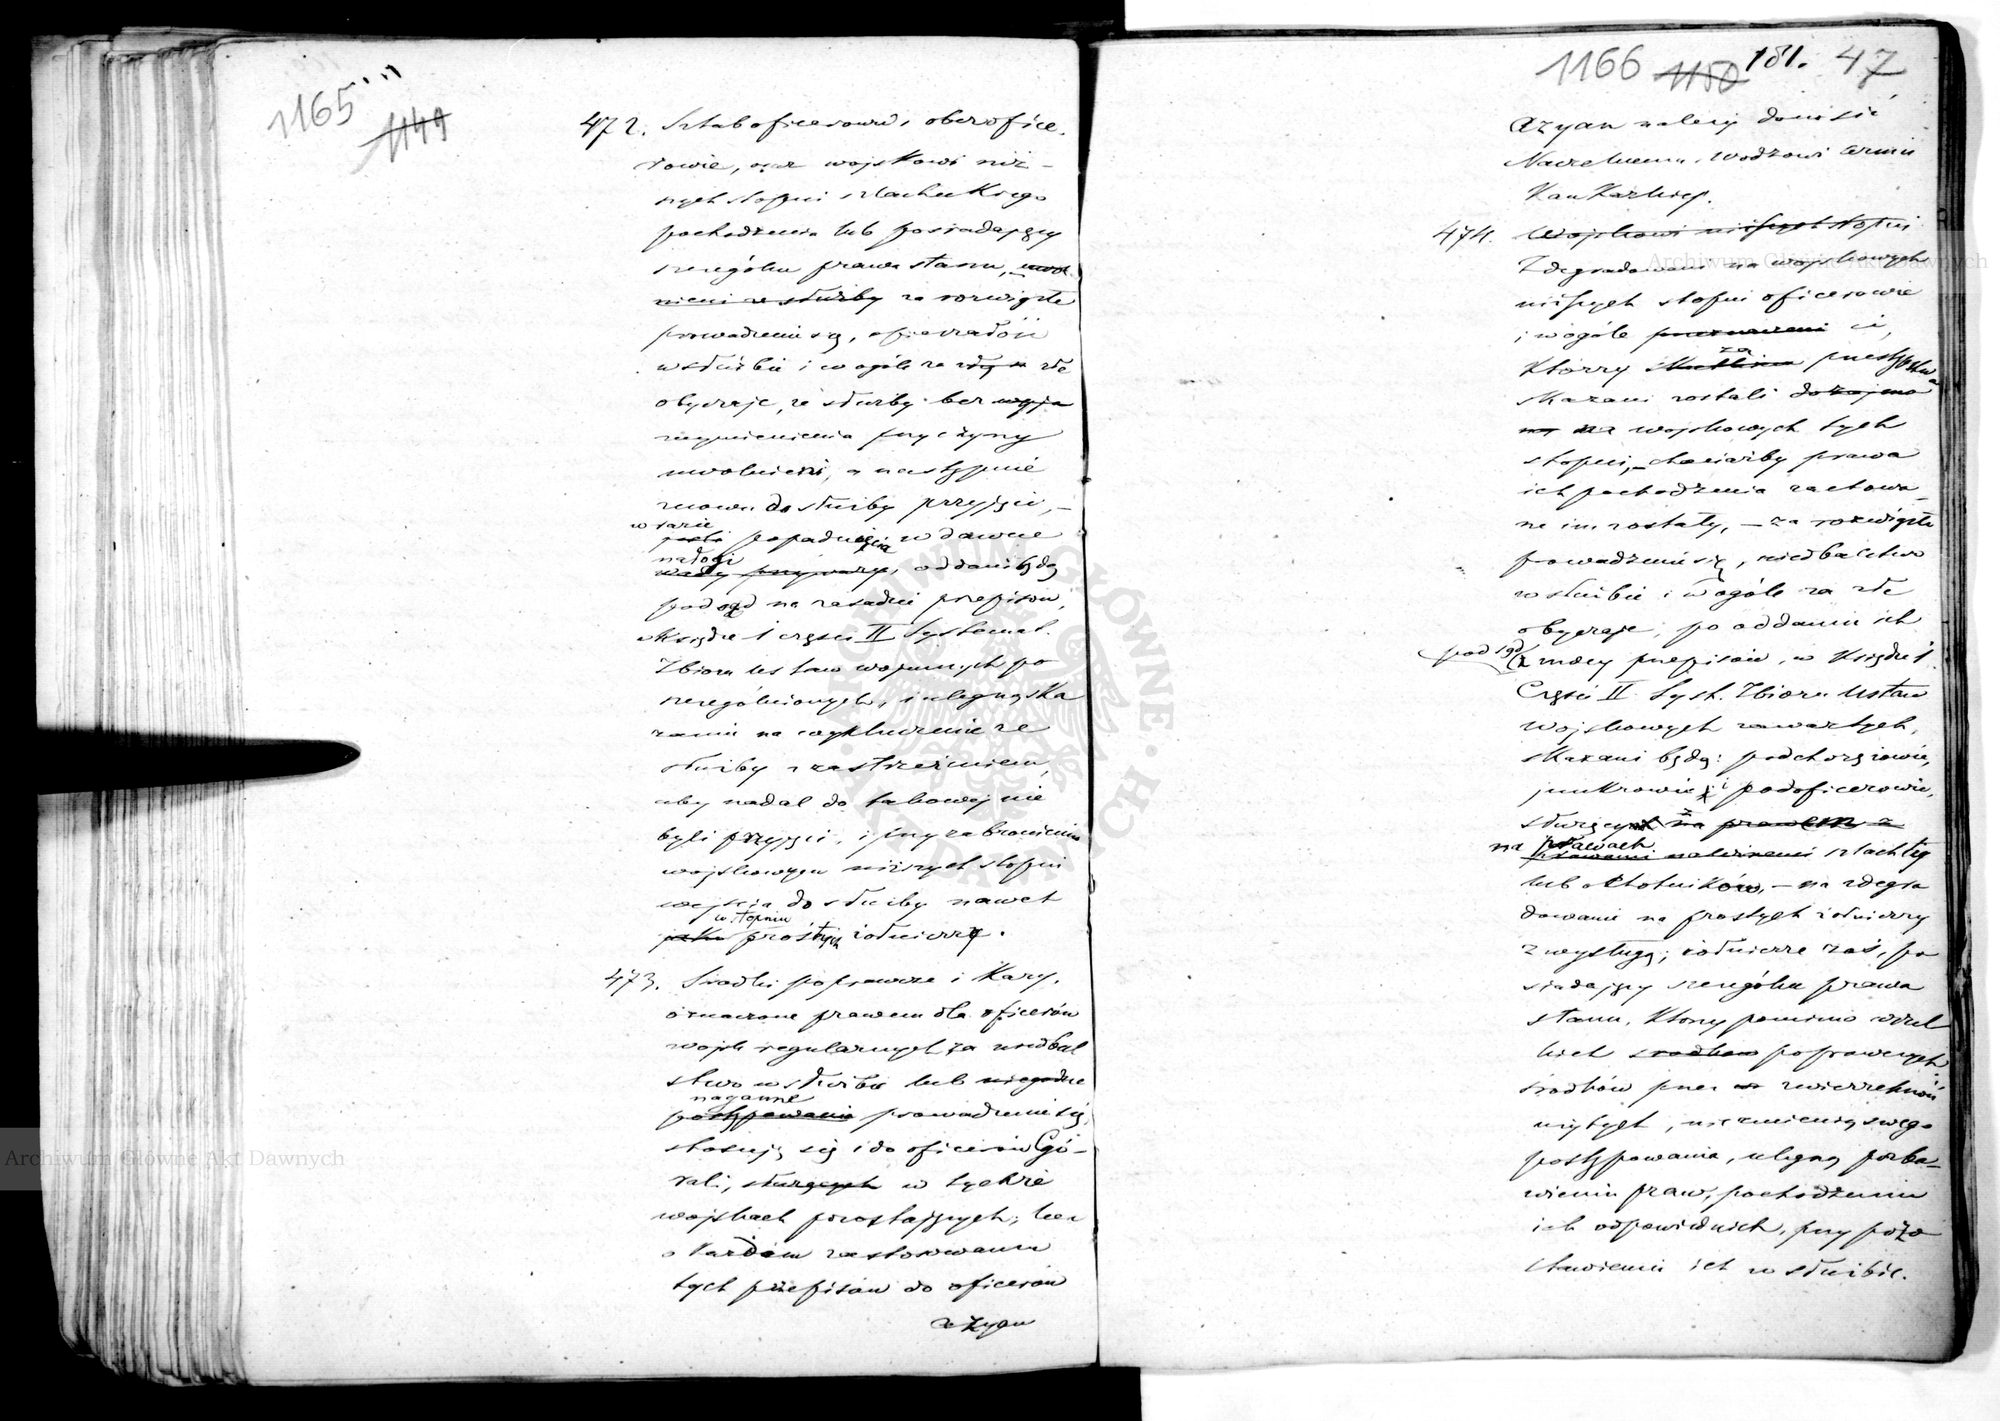 1165
1149
472. Sztaboficerowie, oberofice-
rowie, oraz wojskowi niż-
szych stopni szlacheckiego
pochodzenia lub posiadający
szczególne prawa stanu, uwol-
nieni ze służby za rozwiązłe
prowadzenie się,
w służbie i w ogóle za złe
obyczaje, ze służby bez
wymienienia przyczyny
uwolnieni, a następnie
znowu do służby przyjęci, –
w razie
jeśli popadnięcia w dawne
nałogi
wady oddani będą
pod sąd na zasadzie przepisów,
w Księdze 1 części II Systemat.
Zbioru Ustaw wojennych po
szczególnionych, i ulegną ska
zaniu na wykluczenie ze
służby z zastrzeżeniem,
aby nadal do takowej nie
byli przyjęci, i przy zabronieniu
wojskowym niższych stopni
wejścia do służby nawet
w stopniu
jako prostych żołnierzy.
473. Środki poprawcze i Kary,
oznaczone prawem dla oficerów
wojsk regularnych za niedbal
stwo w służbie lub niegodne
naganne
postępowanie prowadzenie się,
stosują się i do oficerów Gó-
rali, służących w tychże
wojskach pozostających; lecz
o każdém zastosowaniu
tych przepisów do oficerów
azyan
1166 1150 181. 47
azyan należy donosić
Naczelnemu Wodzowi Armii
Kaukazkiej.
474. Wojskowi niższych stopni
Zdegradowani na wojskowych
niższych stopni oficerowie
i w ogóle przeznaczeni ci,
za
którzy skutkiem przestępstwa
skazani zostali
na wojskowych tych
stopni, – chociażby prawa
ich pochodzenia zachowa-
ne im zostały, – za rozwiązłe
prowadzenie się, niedbalstwo
w służbie i w ogóle za złe
obyczaje, po oddaniu ich
pod sąd z mocy przepisów, w Księdze 1
Części II Syst. Zbioru Ustaw
Wojskowych zawartych,
skazani będą: podchorążowie,
junkrowie i podoficerowie,
służący na prawach
na prawach
szlachty
lub ochotników, – na zdegra
dowanie na prostych żołnierzy
z wysługą; żołnierze zaś, po
siadający szczególne prawa
stanu, którzy pomimo wszel
kich środków poprawczych
środków przez zwierzchność
użytych, nie zmienią swego
postępowania, ulegną pozba-
wieniu praw, pochodzeniu
ich odpowiednich, przy pozo
stawieniu ich w służbie.
Archiwum Główne Akt Dawnych
Archiwum Główne Akt Dawnych
ARCHIWUM GŁÓWNE AKT DAWNYCH